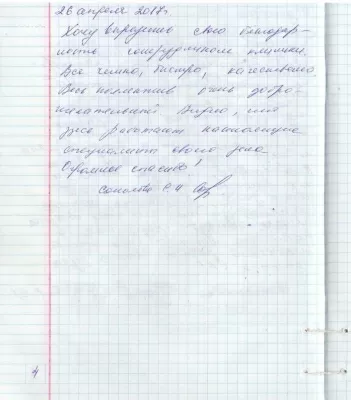 26 апреля 2017г.
Хочу выразить свою благодар-
ность сотрудникам клиники.
Все четко, быстро, качественно.
Весь коллектив очень добро-
желательный. Видно, что
здесь работают настоящие
специалисты своего дела.
Огромное спасибо!
4